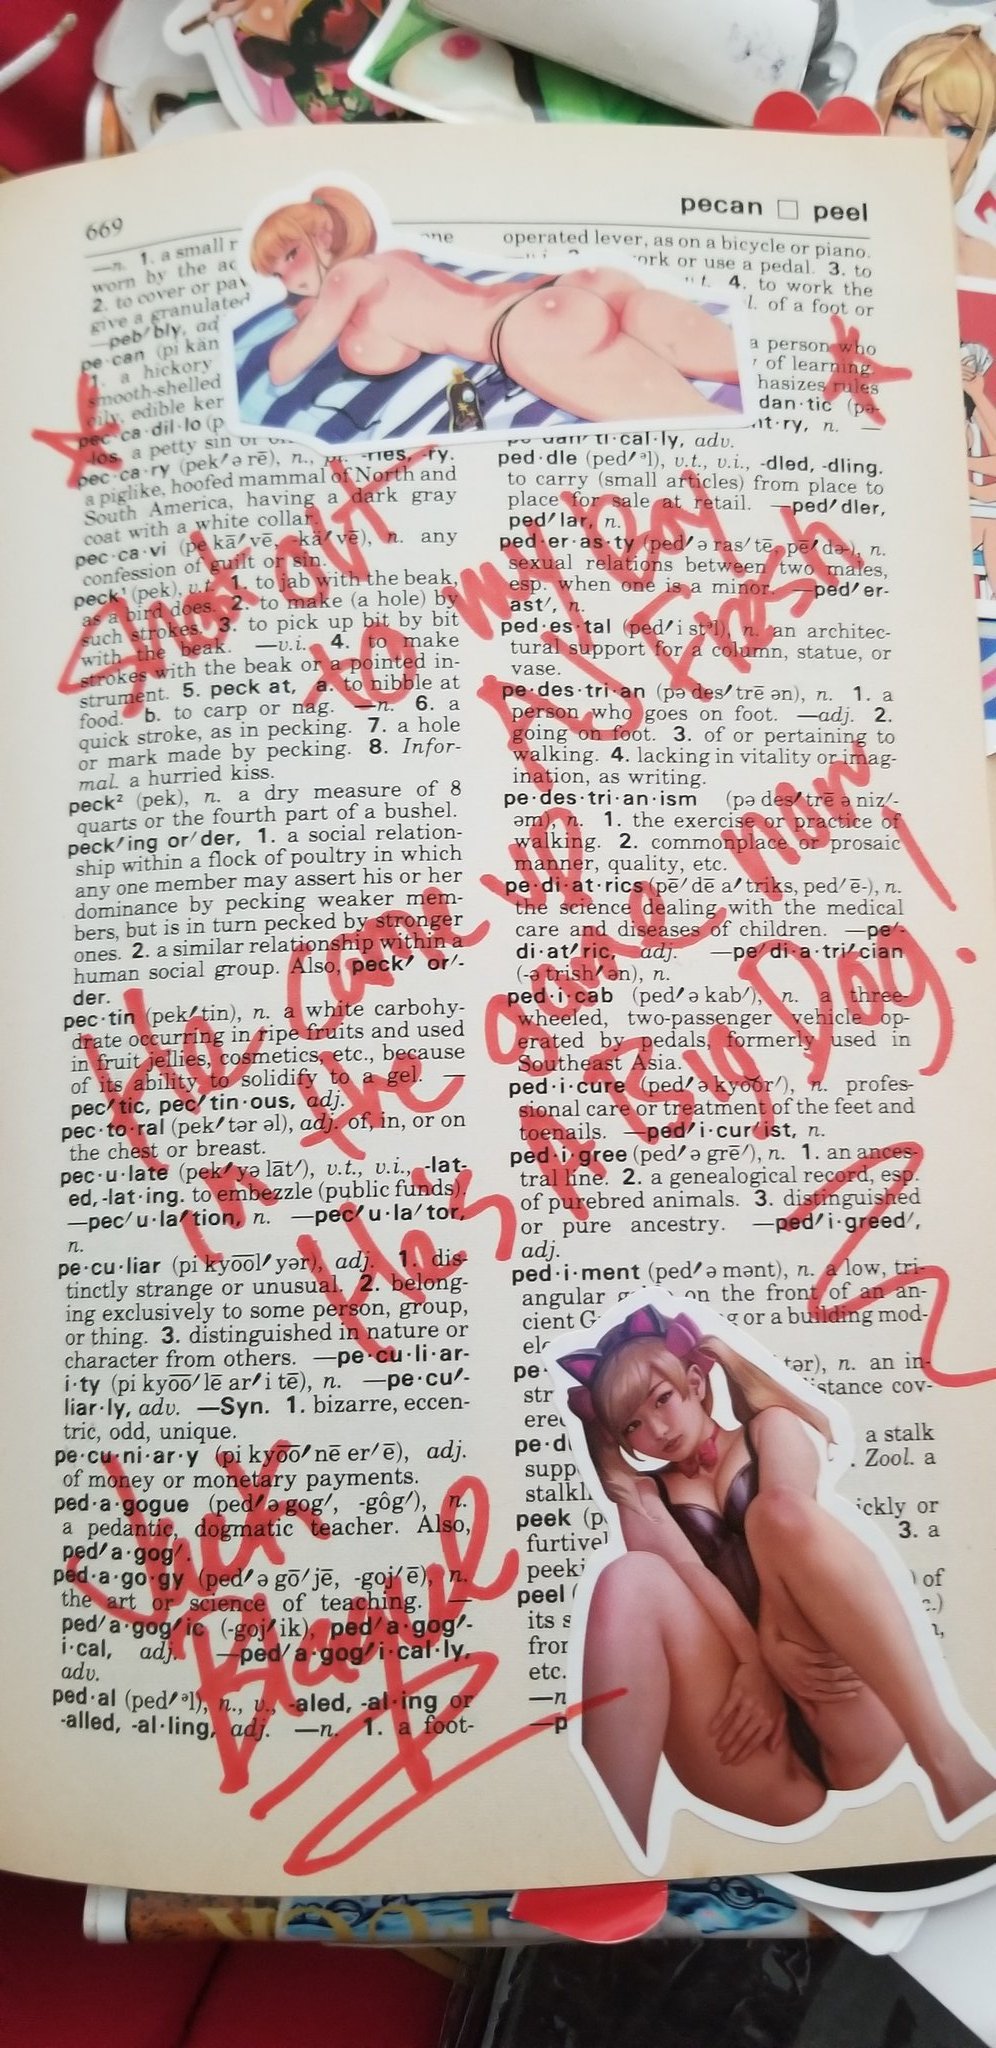 669
pecan □ peel
—n. 1. a small
worn by the
2. to cover or
give a granulated
—peb′bly,
pe·can (pi kän
1. a hickory
smooth-shelled
oily, edible
pec·ca·dil·lo
-los, a petty sin
pec·ca·ry (pek′ə rē), n., pl. -ries, -ry.
a piglike, hoofed mammal of North and
South America, having a dark gray
coat with a white collar.
pec·ca·vi (pe kä′vē, -kā′vē), n. any
confession of guilt or sin.
peck¹ (pek), v.t. 1. to jab with the beak,
as a bird does. 2. to make (a hole) by
such strokes. 3. to pick up bit by bit
with the beak. —v.i. 4. to make
strokes with the beak or a pointed in-
strument. 5. peck at, a. to nibble at
food. b. to carp or nag. —n. 6. a
quick stroke, as in pecking. 7. a hole
or mark made by pecking. 8. Infor-
mal. a hurried kiss.
peck² (pek), n. a dry measure of 8
quarts or the fourth part of a bushel.
peck′ing or′der, 1. a social relation-
ship within a flock of poultry in which
any one member may assert his or her
dominance by pecking weaker mem-
bers, but is in turn pecked by stronger
ones. 2. a similar relationship within a
human social group. Also, peck′ or′-
der.
pec·tin (pek′tin), n. a white carbohy-
drate occurring in ripe fruits and used
in fruit jellies, cosmetics, etc., because
of its ability to solidify to a gel. —
pec′tic, pec′tin·ous, adj.
pec·to·ral (pek′tər əl), adj. of, in, or on
the chest or breast.
pec·u·late (pek′yə lāt′), v.t., v.i., -lat-
ed, -lat·ing. to embezzle (public funds).
—pec′u·la′tion, n. —pec′u·la′tor,
n.
pe·cu·liar (pi kyōōl′yər), adj. 1. dis-
tinctly strange or unusual. 2. belong-
ing exclusively to some person, group,
or thing. 3. distinguished in nature or
character from others. —pe·cu·li·ar-
i·ty (pi kyōō′lē ar′i tē), n. —pe·cu′-
liar·ly, adv. —Syn. 1. bizarre, eccen-
tric, odd, unique.
pe·cu·ni·ar·y (pi kyōō′nē er′ē), adj.
of money or monetary payments.
ped·a·gogue (ped′ə gog′, -gôg′), n.
a pedantic, dogmatic teacher. Also,
ped′a·gog′.
ped·a·go·gy (ped′ə gō′jē, -goj′ē), n.
the art or science of teaching. —
ped′a·gog′ic (-goj′ik), ped′a·gog′-
i·cal, adj. —ped′a·gog′i·cal·ly,
adv.
ped·al (ped′ᵊl), n., v., -aled, -al·ing or
-alled, -al·ling, adj. —n. 1. a foot-
operated lever, as on a bicycle or piano.
work or use a pedal. 3. to
4. to work the
of a foot or
a person who
of learning
hasizes rules
dan·tic (pə-
n. —
dan′ti·cal·ly, adv.
ped·dle (ped′ᵊl), v.t., v.i., -dled, -dling.
to carry (small articles) from place to
place for sale at retail. —ped′dler,
ped′lar, n.
ped·er·as·ty (ped′ə ras′tē, pē′də-), n.
sexual relations between two males,
esp. when one is a minor. —ped′er-
ast′, n.
ped·es·tal (ped′i stᵊl), n. an architec-
tural support for a column, statue, or
vase.
pe·des·tri·an (pə des′trē ən), n. 1. a
person who goes on foot. —adj. 2.
going on foot. 3. of or pertaining to
walking. 4. lacking in vitality or imag-
ination, as writing.
pe·des·tri·an·ism (pə des′trē ə niz′-
əm), n. 1. the exercise or practice of
walking. 2. commonplace or prosaic
manner, quality, etc.
pe·di·at·rics (pē′dē a′triks, ped′ē-), n.
the science dealing with the medical
care and diseases of children. —pe′-
di·at′ric, adj. —pe′di·a·tri′cian
(-ə trish′ən), n.
ped·i·cab (ped′ə kab′), n. a three-
wheeled, two-passenger vehicle op-
erated by pedals, formerly used in
Southeast Asia.
ped·i·cure (ped′ə kyoor′), n. profes-
sional care or treatment of the feet and
toenails. —ped′i·cur′ist, n.
ped·i·gree (ped′ə grē′), n. 1. an ances-
tral line. 2. a genealogical record, esp.
of purebred animals. 3. distinguished
or pure ancestry. —ped′i·greed′,
adj.
ped·i·ment (ped′ə mənt), n. a low, tri-
angular on the front of an an-
cient or a building mod-
n. an in-
distance cov-
a stalk
Zool. a
peek
3. a
peel
of
etc.
—n
Shout out
to my boy
AJ Fresh
He came up
in the game now
He's A Big Dog!
Jick
Blame